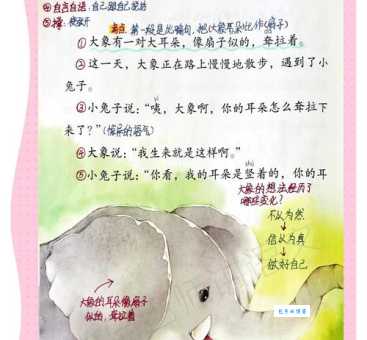 ④自言自语:自己跟自己说话
考点 第一段是比喻句,把(大象耳朵)比作(扇子)
①大象有一对大耳朵,像扇子似的,耷拉着。
②这一天,大象正在路上慢慢地散步,遇到了小
兔子。
yí
③小兔子说:“咦,大象啊,你的耳朵怎么耷拉下
来了?”(惊呆的语气)
④大象说:“我生来就是这样啊。”
shù
⑤小兔子说:“你看,我的耳朵是竖着的,你的耳
大象的想法经历了
哪些变化?
不以为然
↓
信以为真
↓
做好自己
大象的耳朵像扇子
似的,耷拉着